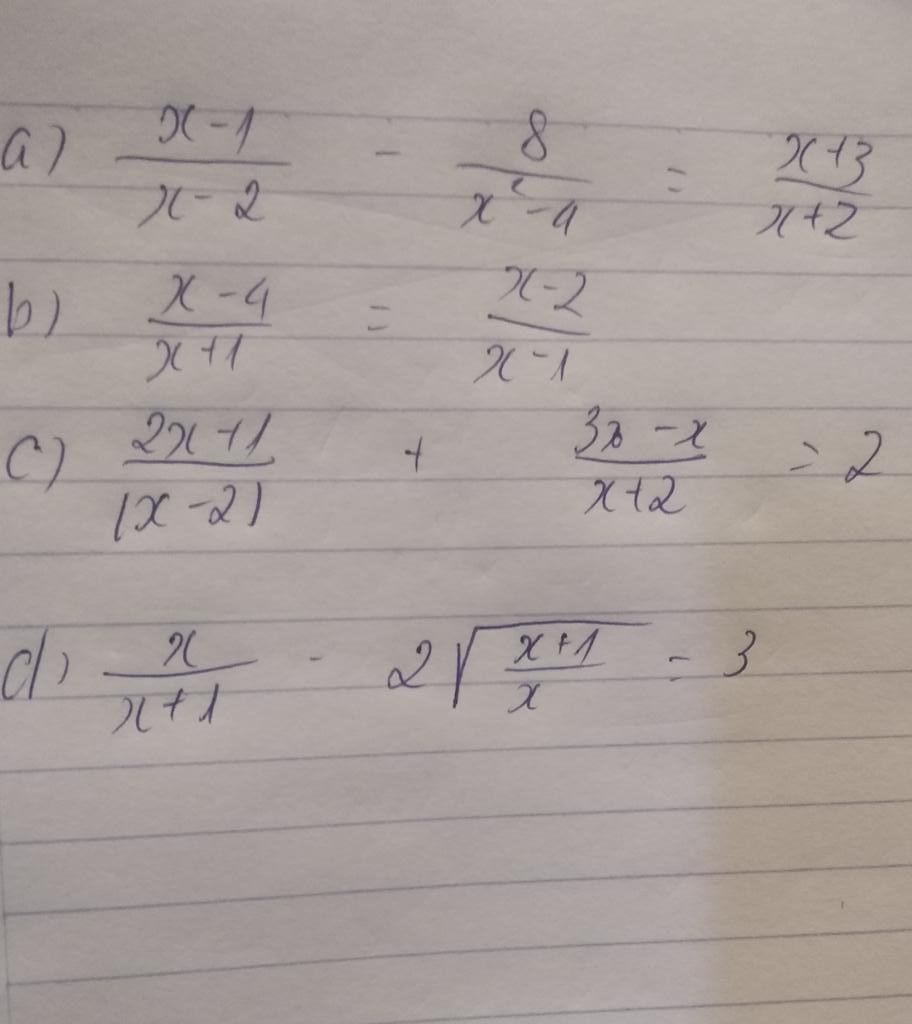 a) (x-1)/(x-2) - 8/(x²-4) = (x+3)/(x+2)
b) (x-4)/(x+1) = (x-2)/(x-1)
c) (2x+1)/(x-2) + (-x)/(x+2) = 2
d) x/(x+1) - 2√((x+1)/x) = 3